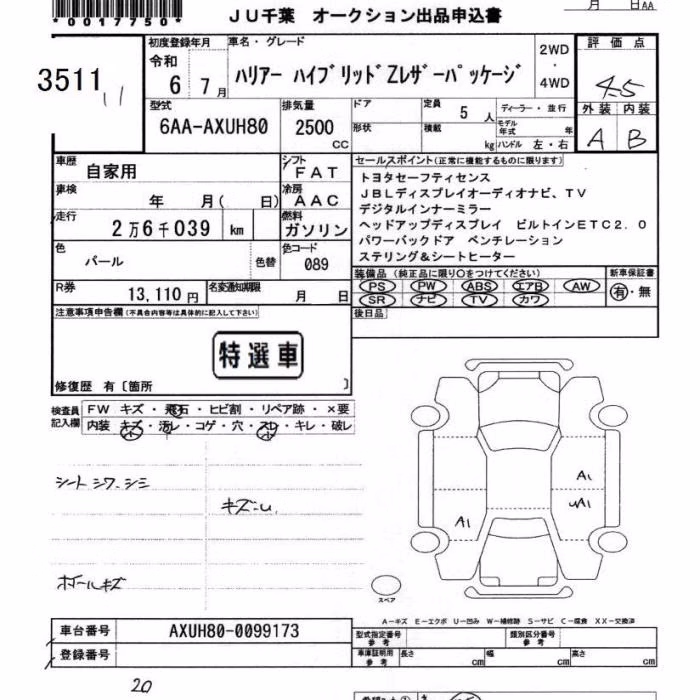 月 日AA
*0017750*
JU千葉 オークション出品申込書
3511
11
初度登録年月
令和
6 年 7 月
車名・グレード
ハリアー ハイブリッドZレザーパッケージ
2WD
・
4WD
評価点
4.5
外装 内装
A B
型式
6AA-AXUH80
排気量
2500
CC
ドア
形状
定員
5 人
積載
kg
ディーラー・並行
モデル年式 年
ハンドル 左・右
車歴
自家用
シフト
FAT
車検
年 月( 日)
冷房
AAC
走行
2万6千039 km
燃料
ガソリン
色
パール
色替
色コード
089
R券
13,110円
名変通知期限
月 日
セールスポイント(正常に機能するものに限ります)
トヨタセーフティセンス
JBLディスプレイオーディオナビ、TV
デジタルインナーミラー
ヘッドアップディスプレイ ビルトインETC2.0
パワーバックドア ベンチレーション
ステリング&シートヒーター
装備品 (純正品に限り○をつけてください)
PS PW ABS エアB AW
SR ナビ TV カワ
新車保証書
有・無
後日品
注意事項申告欄(不具合内容等は具体的に記入して下さい)
特選車
修復歴 有〔箇所 〕
検査員記入欄
FW キズ・飛石・ヒビ割・リペア跡・×要
内装 キズ・汚レ・コゲ・穴・スレ・キレ・破レ
シートシワ、シミ
キズ-U
ボールキズ
A1
UA1
A1
スペア
A-キズ E-エクボ U-凹み W-補修跡 S-サビ C-腐食 XX-交換済
車台番号 AXUH80-0099173
登録番号
型式指定番号
参考
類別区分番号
参考
車庫証明用
参考
長さ cm 幅 cm 高さ cm
20